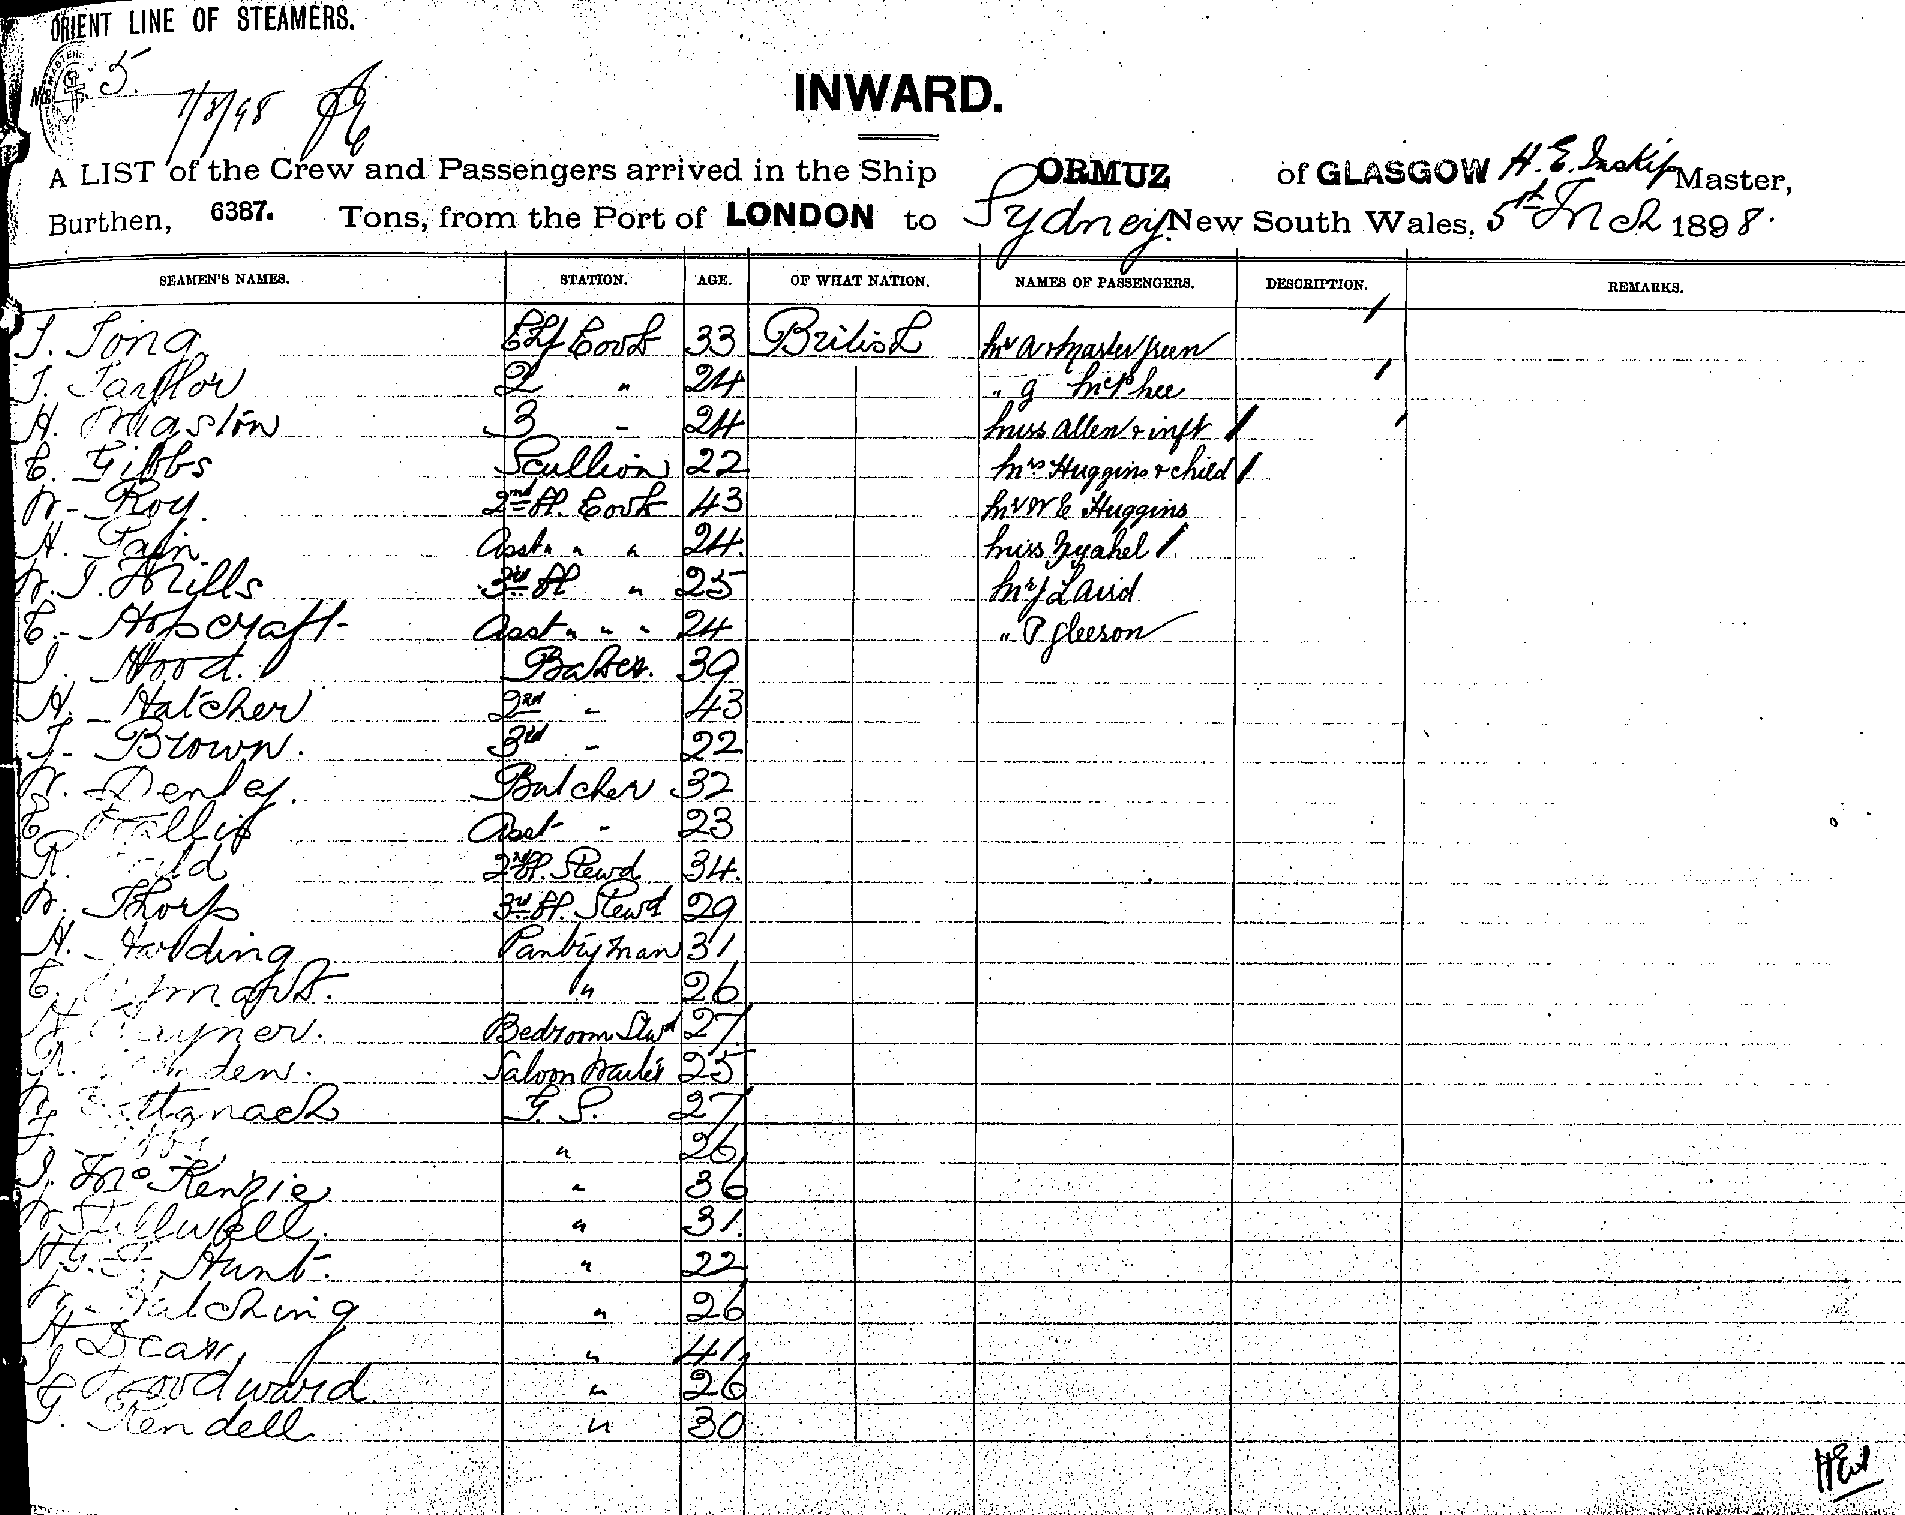 ORIENT LINE OF STEAMERS.
5.
7/3/98
INWARD.
A LIST of the Crew and Passengers arrived in the Ship ORMUZ of GLASGOW H. E. Inskip Master,
Burthen, 6387. Tons, from the Port of LONDON to Sydney New South Wales, 5th Mch 1898.
SEAMEN'S NAMES. STATION. AGE. OF WHAT NATION. NAMES OF PASSENGERS. DESCRIPTION. REMARKS.
Chf Cook 33 British Mr A & Master Green
J. Taylor 2 " 24 " G McPhee
H. Maston 3 " 24 Miss Allen & inft
E. Gibbs Scullion 22 Mrs Huggins & child
W. Roy. 2nd Sl. Cook 43 Mr W E Huggins
H. Pain. Asst " " 24. Miss
W. J. Mills 3rd Sl " 25 Mr J Laird
E. Hopcraft Asst " " " 24 " P Gleeson
J. Hood. Baker. 39
H. Hatcher 2nd " 43
J. Brown. 3rd " 22
W. Denley. Butcher 32
E. Asst " 23
R. 2nd Sl. Stewd 34.
W. Thorp 3rd Sl. Stewd 29
H. Harding Pantryman 31
E. " 26
H. Rayner. Bedroom Stwd 27
R. Saloon Waiter 25
Cattanach G. S. 27
" 26
J. McKenzie " 36
W. Stillwell. " 31.
H. G. F. Hunt. " 22
" 26
H Dean " 41
J Woodward " 26
G. Kendell " 30